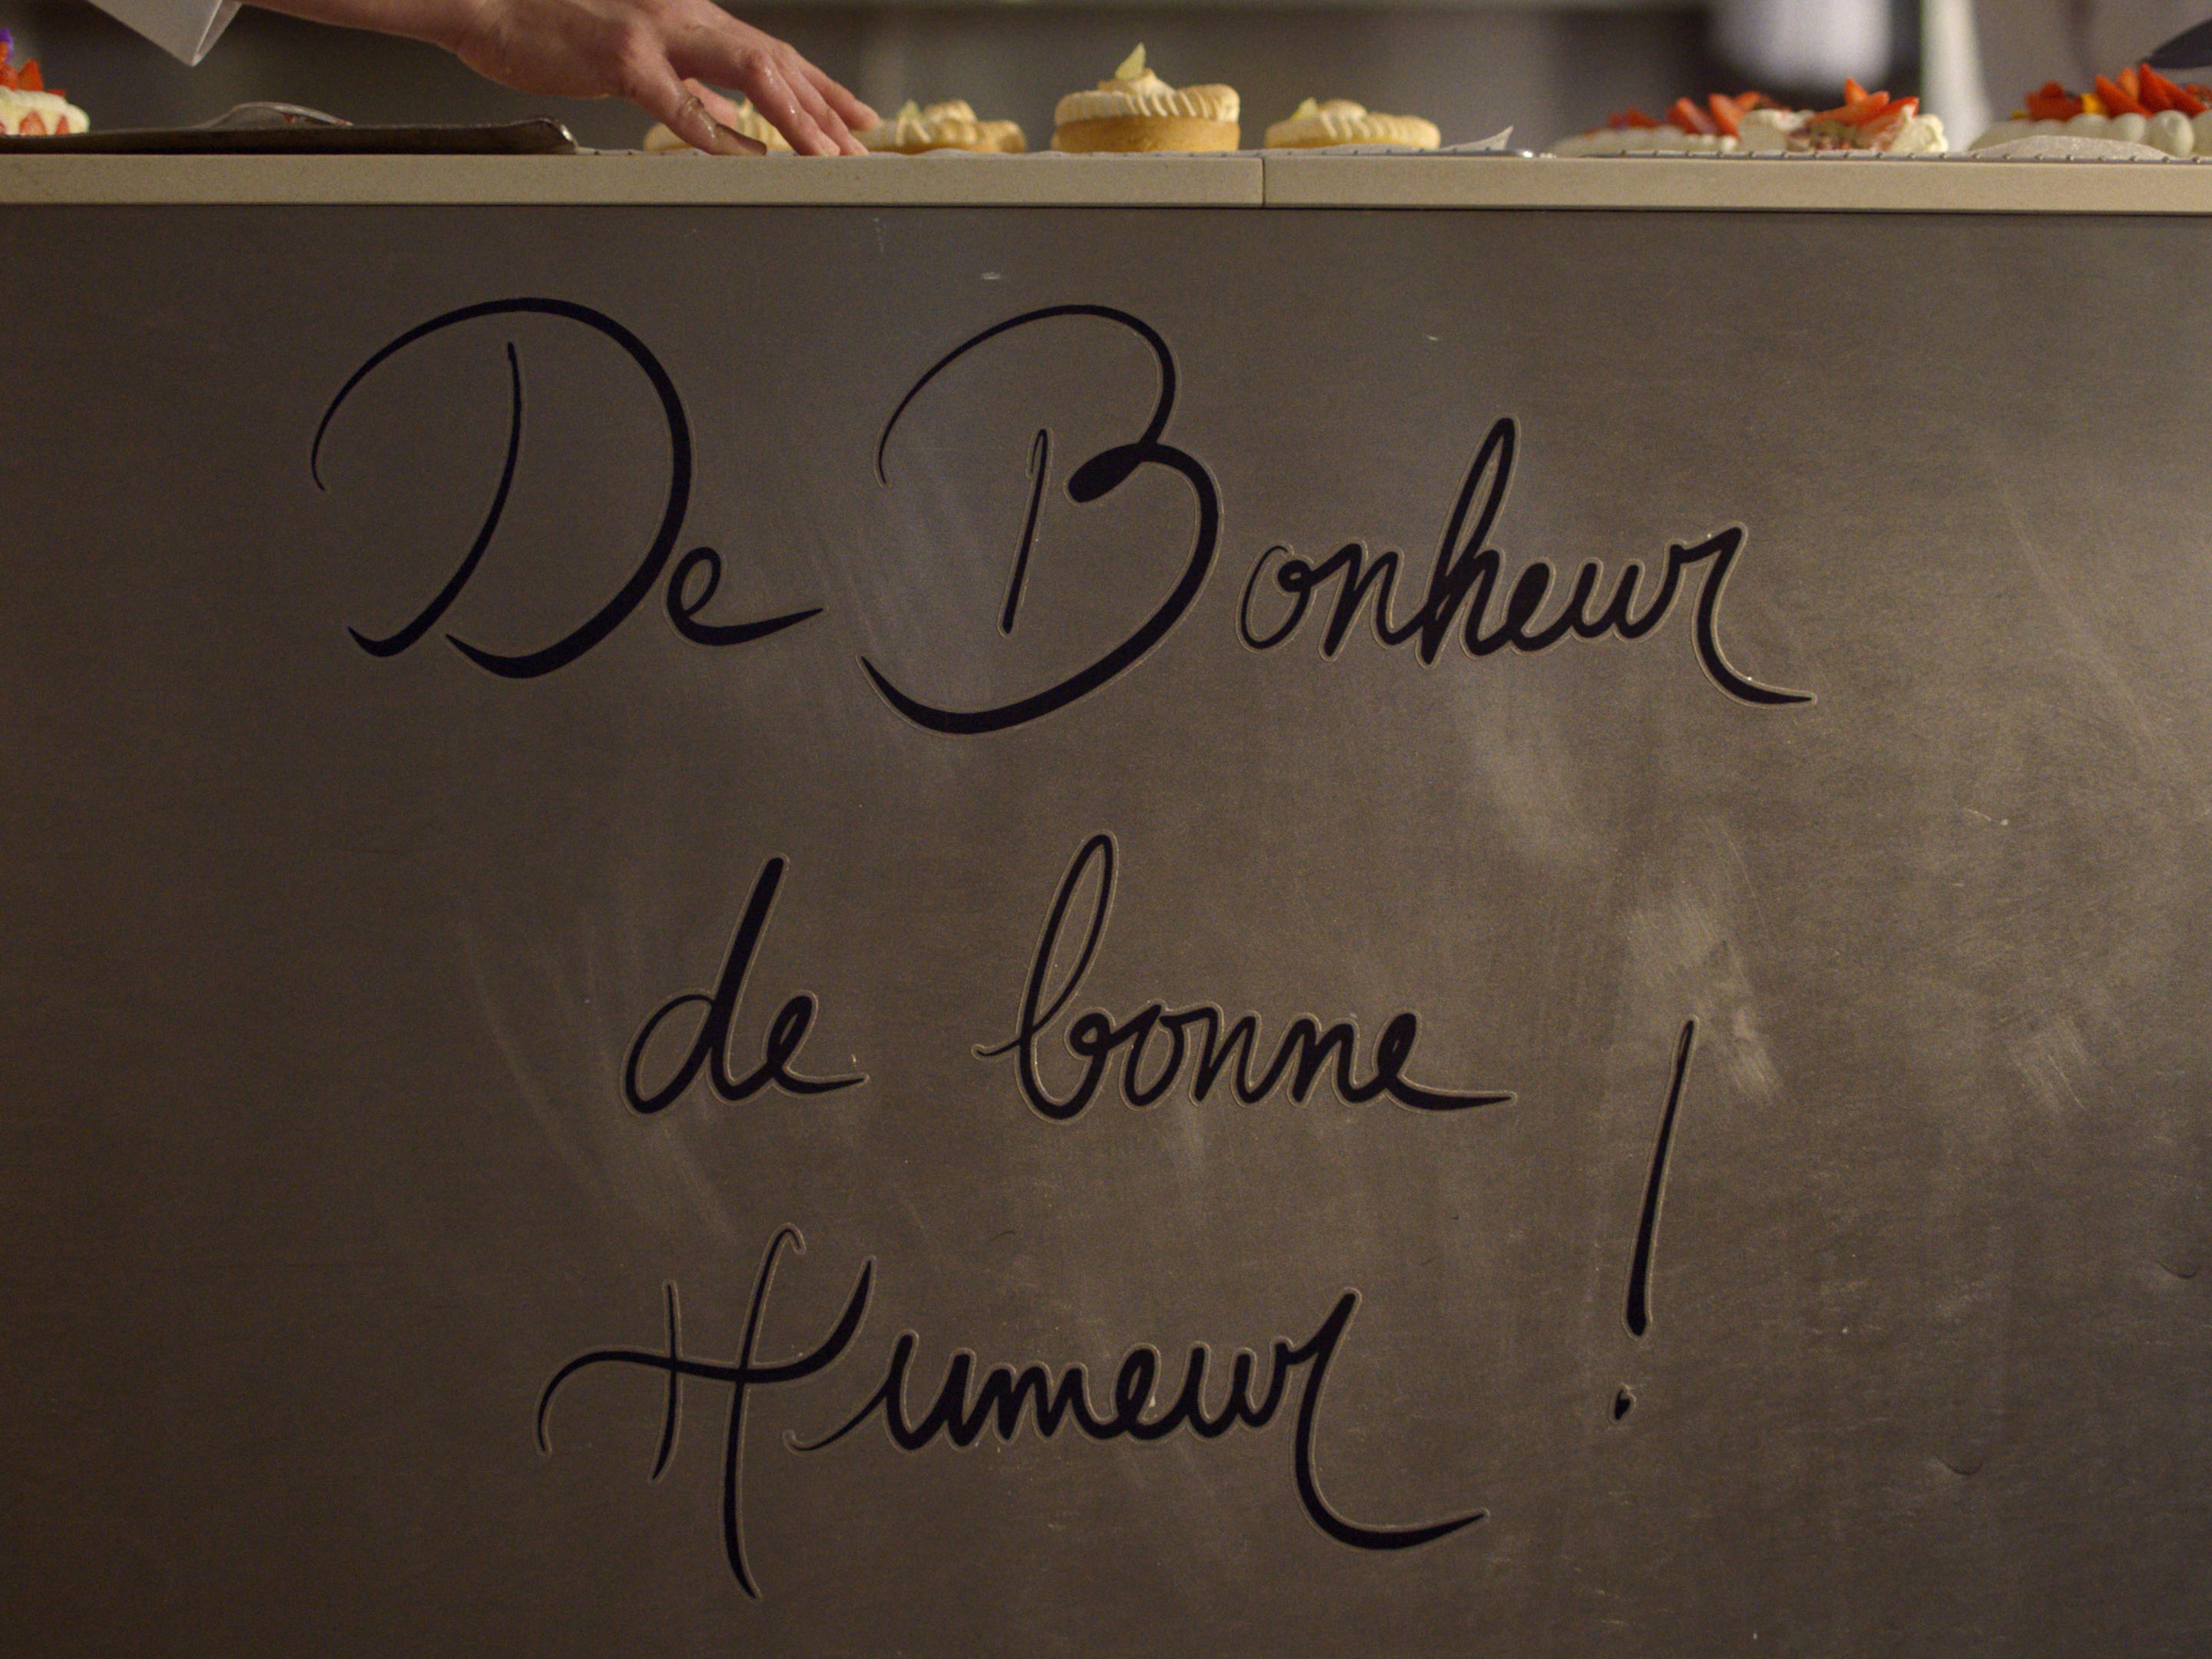 De Bonheur
de bonne
Humeur !